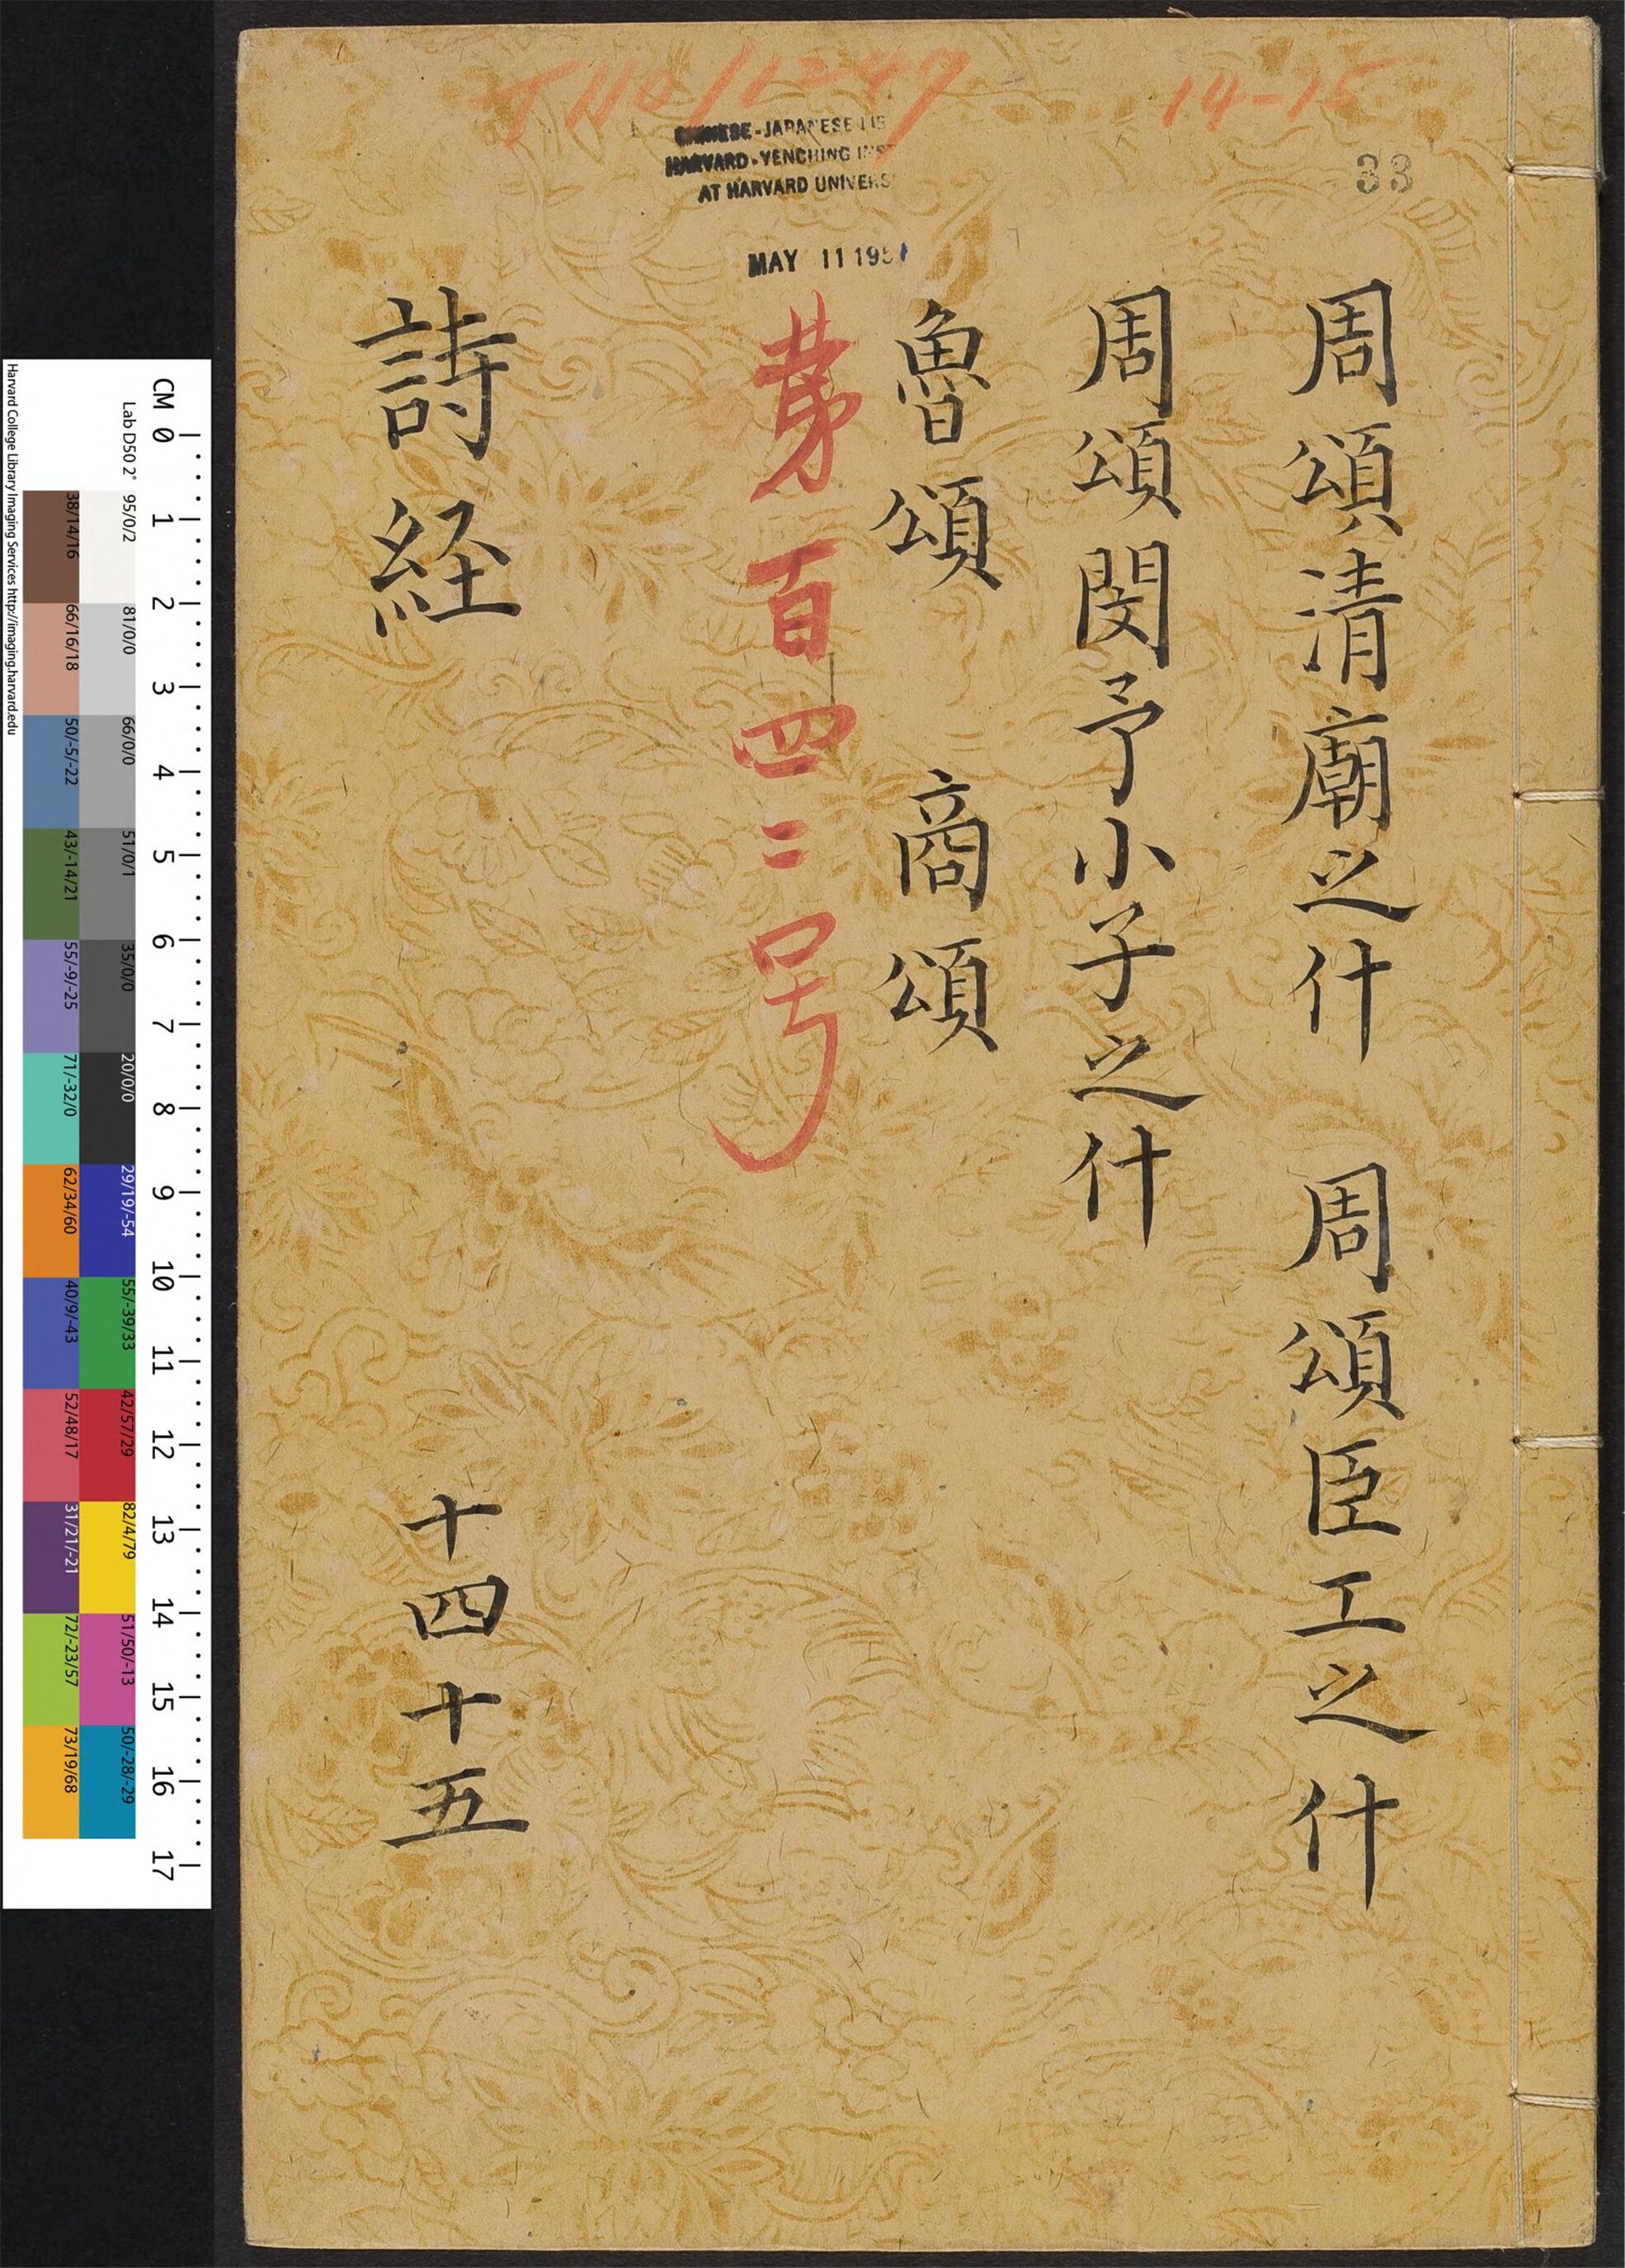 14-15
33
CHINESE-JAPANESE LIB
HARVARD-YENCHING INST
AT HARVARD UNIVERS
MAY 11 195
周頌清廟之什 周頌臣工之什
周頌閔予小子之什
魯頌 商頌
第百四二号
詩経 十四十五
CM 0 1 2 3 4 5 6 7 8 9 10 11 12 13 14 15 16 17
Lab D50 2° 95/0/2 81/0/0 66/0/0 51/0/1 35/0/0 20/0/0 29/19/-54 55/-39/33 42/57/29 82/4/79 51/50/-13 50/-28/-29
38/14/16 66/16/18 50/-5/-22 43/-14/21 55/-9/-25 71/-32/0 62/34/60 40/9/-43 52/48/17 31/21/-21 72/-23/57 73/19/68
Harvard College Library Imaging Services http://imaging.harvard.edu